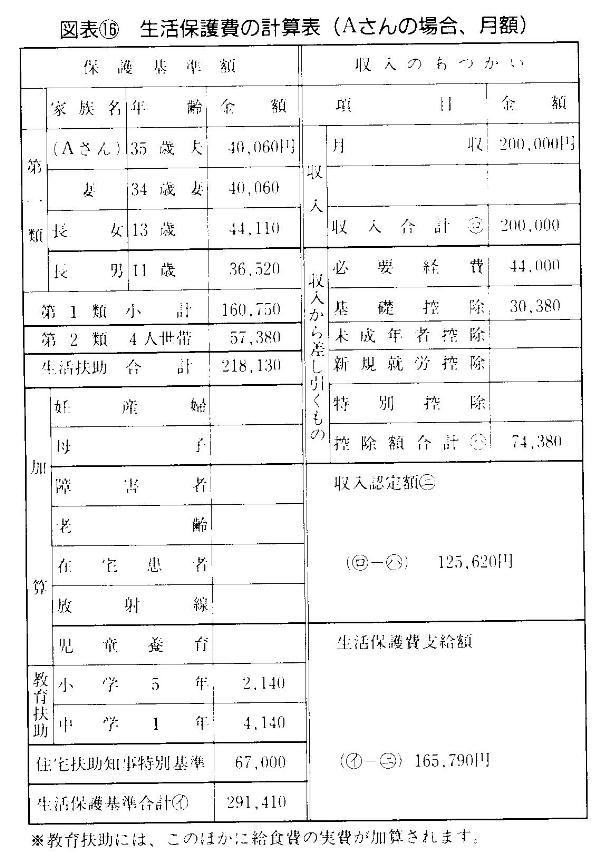 図表⑯ 生活保護費の計算表(Aさんの場合、月額)
保護基準額
家族名 年齢 金額
第一類
(Aさん) 35歳夫 40,060円
妻 34歳妻 40,060
長女 13歳 44,110
長男 11歳 36,520
第1類小計 160,750
第2類 4人世帯 57,380
生活扶助合計 218,130
加算
妊産婦
母子
障害者
老齢
在宅患者
放射線
児童養育
教育扶助
小学5年 2,140
中学1年 4,140
住宅扶助知事特別基準 67,000
生活保護基準合計㋑ 291,410
収入のあつかい
項目 金額
収入
月収 200,000円
収入合計㋺ 200,000
収入から差し引くもの
必要経費 44,000
基礎控除 30,380
未成年者控除
新規就労控除
特別控除
控除額合計㋩ 74,380
収入認定額㋥
(㋺−㋩) 125,620円
生活保護費支給額
(㋑−㋥) 165,790円
※教育扶助には、このほかに給食費の実費が加算されます。